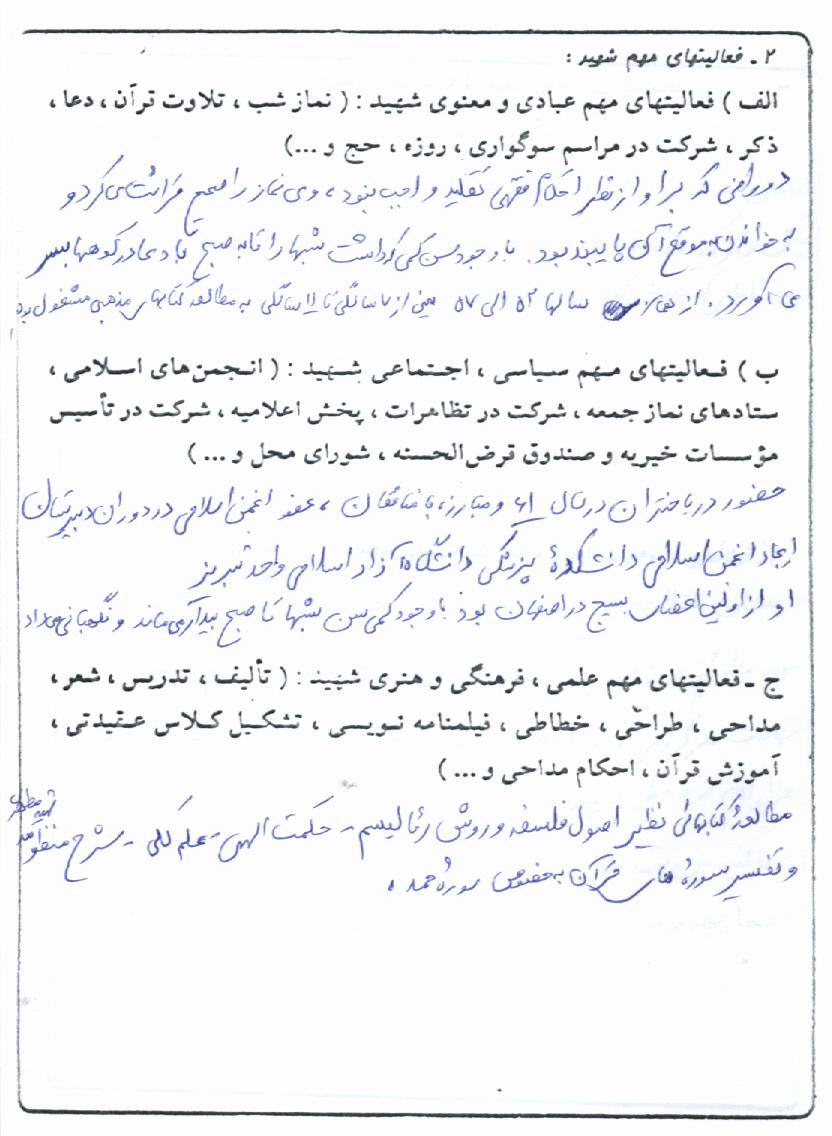 ۲ ـ فعالیتهای مهم شهید :
الف ) فعالیتهای مهم عبادی و معنوی شهید : ( نماز شب ، تلاوت قرآن ، دعا ،
ذکر ، شرکت در مراسم سوگواری ، روزه ، حج و ...)
که برا و از نظر احکام فقهی تقلید واجب نبود ، وی نماز را صحیح قرائت می کرد و
به خواندن به موقع آن پایبند بود . با وجود سن کمی که داشت شبها را تا به صبح با دعا در کوهها بسر
می آورد . از سالها ۵۲ الی ۵۷ یعنی از سالگی تا سالگی به مطالعه کتابهای مذهبی مشغول بود
ب ) فعالیتهای مهم سیاسی ، اجتماعی شهید : ( انجمن‌های اسلامی ،
ستادهای نماز جمعه ، شرکت در تظاهرات ، پخش اعلامیه ، شرکت در تأسیس
مؤسسات خیریه و صندوق قرض‌الحسنه ، شورای محل و ... )
حضور در باختران در سال ۶۱ و مبارزه با منافقان ، عضو انجمن اسلامی در دوران دبیرستان
ایجاد انجمن اسلامی دانشکدهٔ پزشکی دانشگاه آزاد اسلامی واحد تبریز
او از اولین اعضای بسیج در اصفهان بود با وجود کمی سن شبها تا صبح بیدار می ماند و نگهبانی می داد
ج ـ فعالیتهای مهم علمی ، فرهنگی و هنری شهید : ( تألیف ، تدریس ، شعر ،
مداحی ، طراحّی ، خطاطی ، فیلمنامه نویسی ، تشکیل کلاس عقیدتی ،
آموزش قرآن ، احکام مداحی و ... )
مطالعهٔ کتابهائی نظیر اصول فلسفه و روش رئالیسم - حکمت الهی - علم کلی - شرح منظومه شهید مطهری
و تفسیر سورهٔ های قرآن به خصوص سورهٔ حمد .